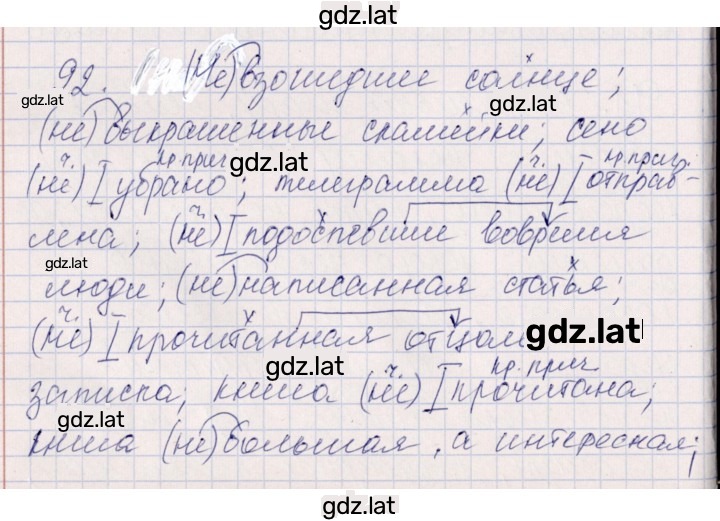 gdz.lat
92. (Не)взошедшее солнце;
gdz.lat
gdz.lat
(не)выкрашенные скамейки; сено
ч. кр.прич ч. кр.прич
(не) | убрано; телеграмма (не) | отправ-
gdz.lat
gdz.lat
лена; (не) | подоспевшие вовремя
ч.
gdz.lat
люди; (не)написанная статья;
gdz.lat
ч. х
(не) | прочитанная отцом
gdz.lat
записка; книга (не) | прочитана;
ч. кр.прич
gdz.lat
книга (не)большая, а интересная;
gdz.lat